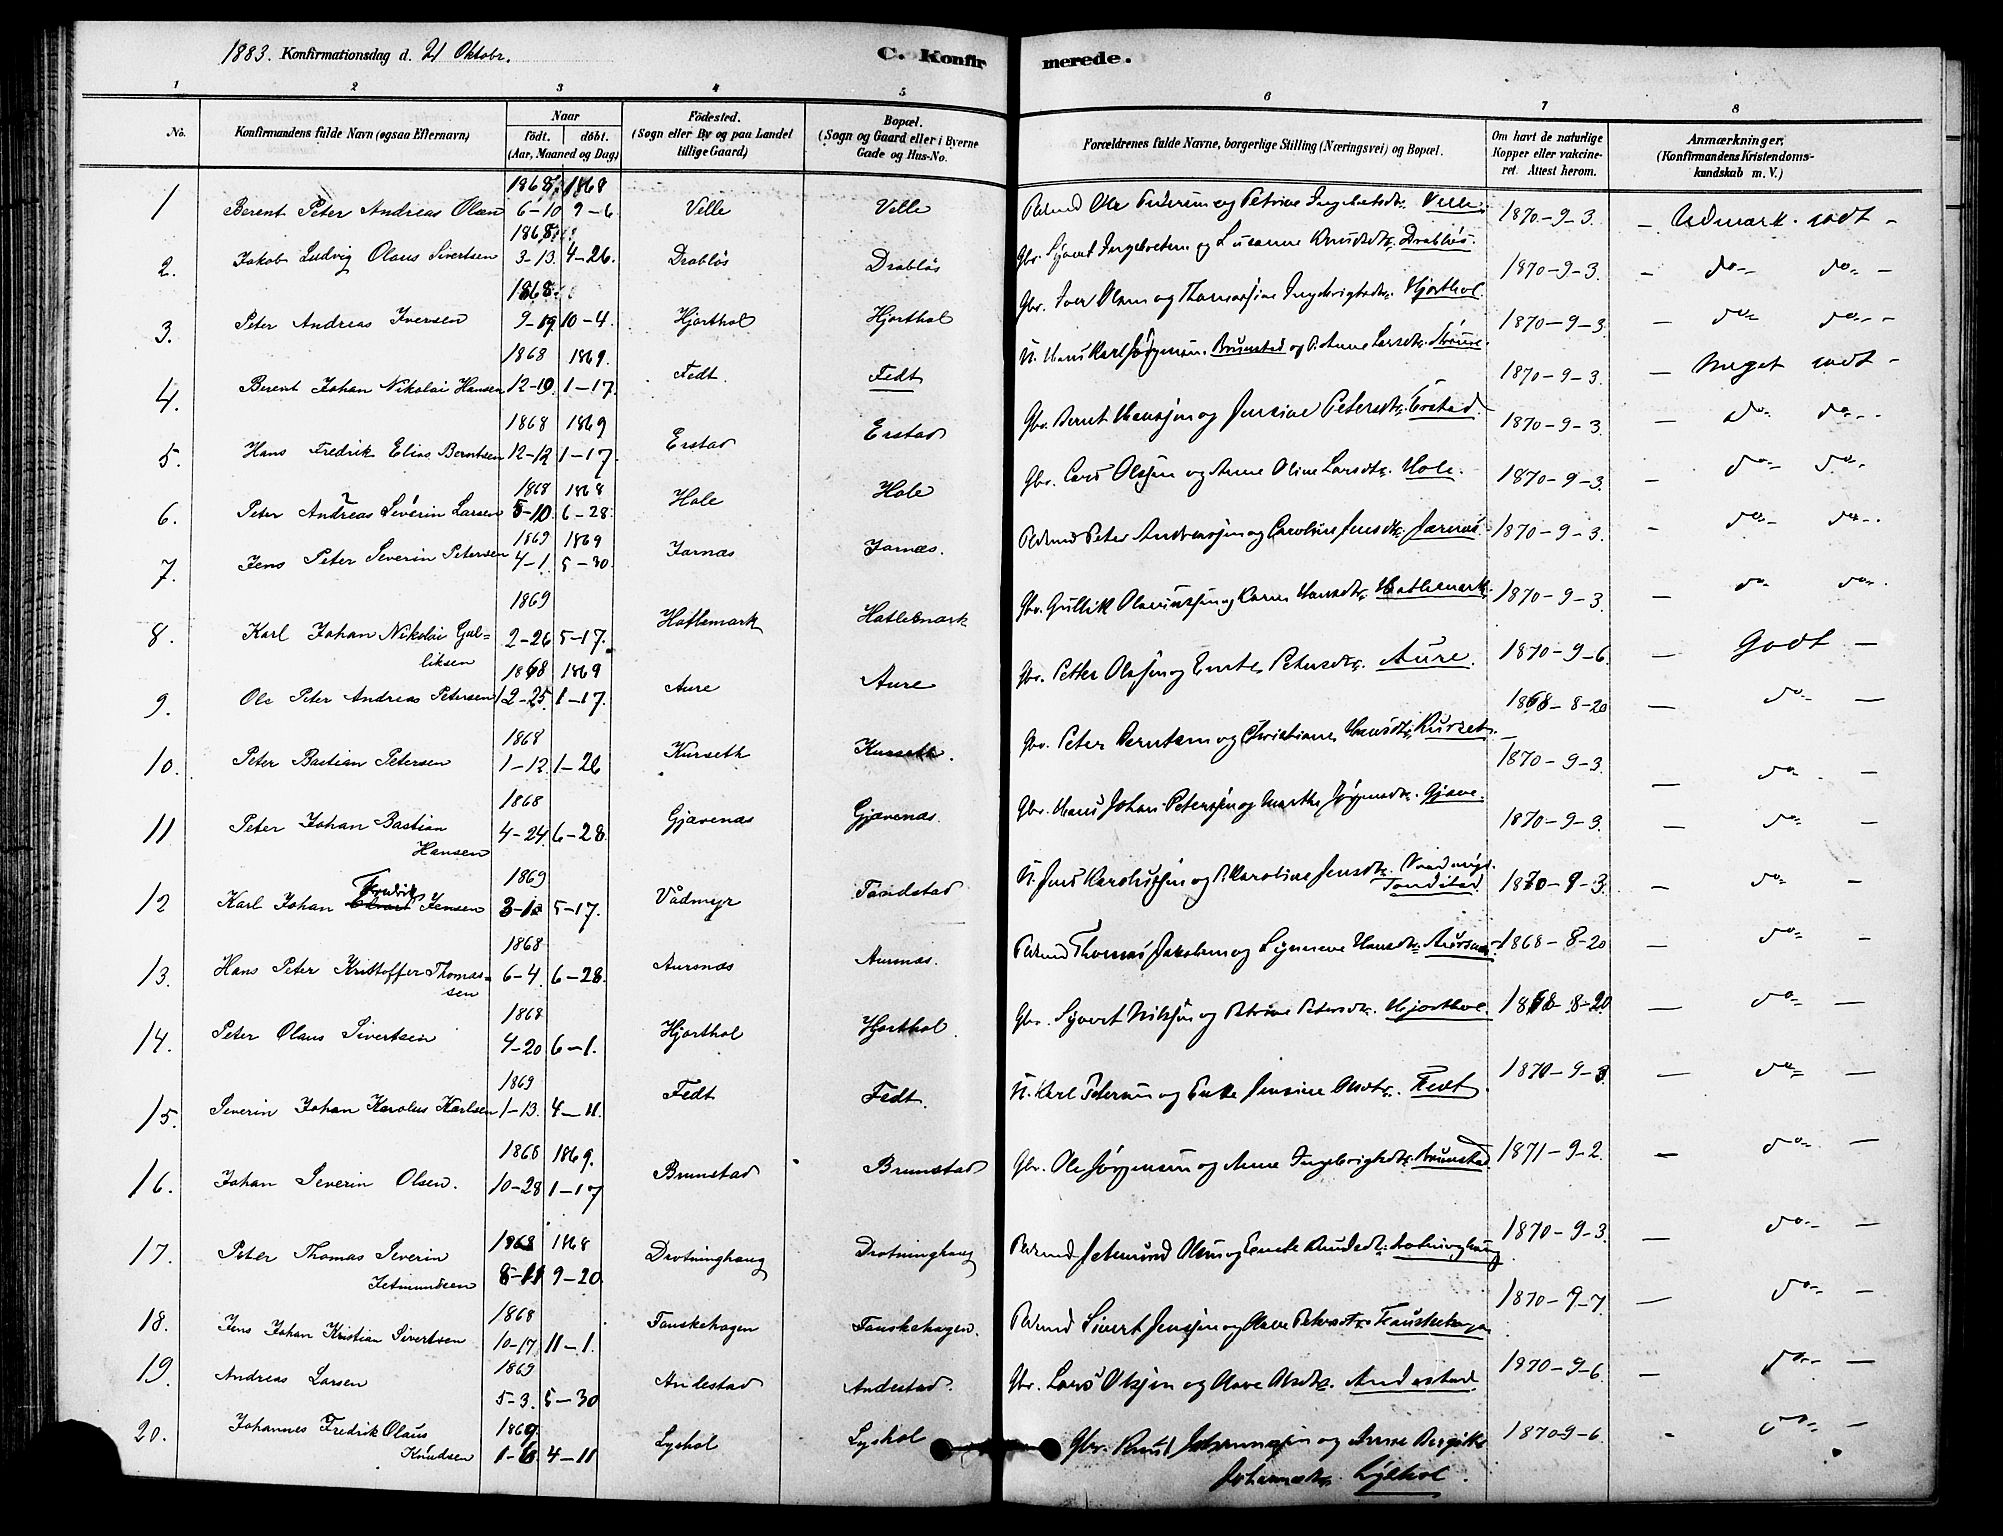 1883. Konfirmationsdag d. 21 Oktobr.
C. Konfirmerede.
1 2 3 4 5 6 7 8
No.
Konfirmandens fulde Navn (ogsaa Efternavn)
Naar
födt. döbt.
(Aar, Maaned og Dag)
Födested.
(Sogn eller By og paa Landet
tillige Gaard)
Bopæl.
(Sogn og Gaard eller i Byerne
Gade og Hus-No.
Forældrenes fulde Navne, borgerlige Stilling (Næringsvei) og Bopæl.
Om havt de naturlige
Kopper eller vakcine-
ret. Attest herom.
Anmærkninger.
(Konfirmandens Kristendoms-
kundskab m. V.)
1868 1868
1 Berent Peter Andreas Olsen 6-10 9-6 Velle Velle Ole Pedersen og Petrine Velle 1870-9-3. - Udmærk. godt -
1868
2. Jakob Ludvig Olaus Sivertsen 3-13. 4-26. Drabløs Drabløs Gbr. Sivert og Susanne Knudsdtr. Drabløs. 1870-9-3. - do- do- -
1868
3. Peter Andreas Iversen 9-19. 10-4. Hjorthol Hjorthol Gbr. Iver Olsen og Thomasine Hjorthol. 1870-9-3. - do- do- -
1868 1869.
4. Berent Johan Nikolai Hansen 12-10. 1-17. Fedt. Fedt U. Hans Karl Jørgensen. Brunstad og P. Anne Larsdtr. 1870-9-3. - Meget godt -
1868 1869
5. Hans Fredrik Elias Berntsen 12-12 1-17. Erstad Erstad Gbr. Bernt Hanssen og Jensine Petersdtr. Erstad. 1870-9-3. - do- do-
1868 1868
6. Peter Andreas Severin Larsen 5-10. 6-28. Hole Hole Gbr. Lars Olssen og Anne Oline Larsdtr. Hole. 1870-9-3. - do- do-
1869 1869
7. Jens Peter Severin Petersen 4-1. 5-30. Jarnæs Jarnæs. Peter Andreassen og Caroline Jensdtr. Jarnæs. 1870-9-3. - do- do-
1869
8. Karl Johan Nikolai Gul- 2-26 5-17. Hatlemark Hatlemark Gbr. Gullik og Karen Hansdtr. Hatlemark. 1870-9-3. - do do-
liksen
1868 1869
9. Ole Peter Andreas Petersen 12-25. 1-17. Aure Aure Gbr. Petter Olssen og Petersdtr. Aure. 1870-9-6. - Godt -
1868
10. Peter Bastian Petersen 1-12. 1-26 Kurseth Kurseth. Gbr. Peter Berntsen og Christiane Hansdtr. Kurset. 1868-8-20 - do- -
1868
11 Peter Johan Bastian 4-24. 6-28. Gjævenæs Gjævenæs. Gbr. Hans Johan Peterssen og Marthe Jørgensdtr. Gjæve. 1870-9-3. - do- -
Hansen
1869
12 Karl Johan Fredrik Jensen 3-10 5-17. Vådmyr Tandstad U. Jens Karolussen og P. Karoline Jensdtr. Tandstad. 1870-9-3. - do- -
1868
13. Hans Peter Kristoffer Thomas- 6-4. 6-28. Aursnæs Aursnæs. Thomas Jakobsen og Synneve Hansdtr. Aursnæs 1868-8-20 - do- -
sen
1868
14. Peter Olaus Sivertsen 4-20 6-1. Hjorthol Hjorthol. Gbr. Syvert Nilssen og Petrine Petersdtr. Hjorthol. 1868-8-20. - do- -
1869
15. Severin Johan Karolus Karlsen 1-13. 4-11. Fedt Fedt. U. Karl Petersen og Jensine Olsdtr. Fedt. 1870-9-3. - do- -
1868 1869.
16. Johan Severin Olsen. 10-28 1-17 Brunstad Brunstad Gbr. Ole Jørgensen og Anne Ingebrigtsdtr. Brunstad. 1871-9-2. - do- -
1868 1868
17. Peter Thomas Severin 8-11 9-20. Drotninghaug Drotninghaug Jetmund Olsen og Knudsdtr. 1870-9-3. - do- -
Jetmundsen
1868
18. Jens Johan Kristian Sivertsen 10-17. 11-1. Fauskehagen Fauskehagen. Sivert Jenssen og Petersdtr. 1870-9-7. - do- -
1869
19. Andreas Larsen 5-3. 5-30 Andestad Andestad. Gbr. Lars Olssen og Olsdtr. Andestad 1870-9-6. - do- -
1869.
20. Johannes Fredrik Olaus 1-6 4-11 Lyshol Lyshol Gbr. Knut Johannessen og 1870-9-6. - do- -
Knudsen
Johannesdtr. Lyshol.